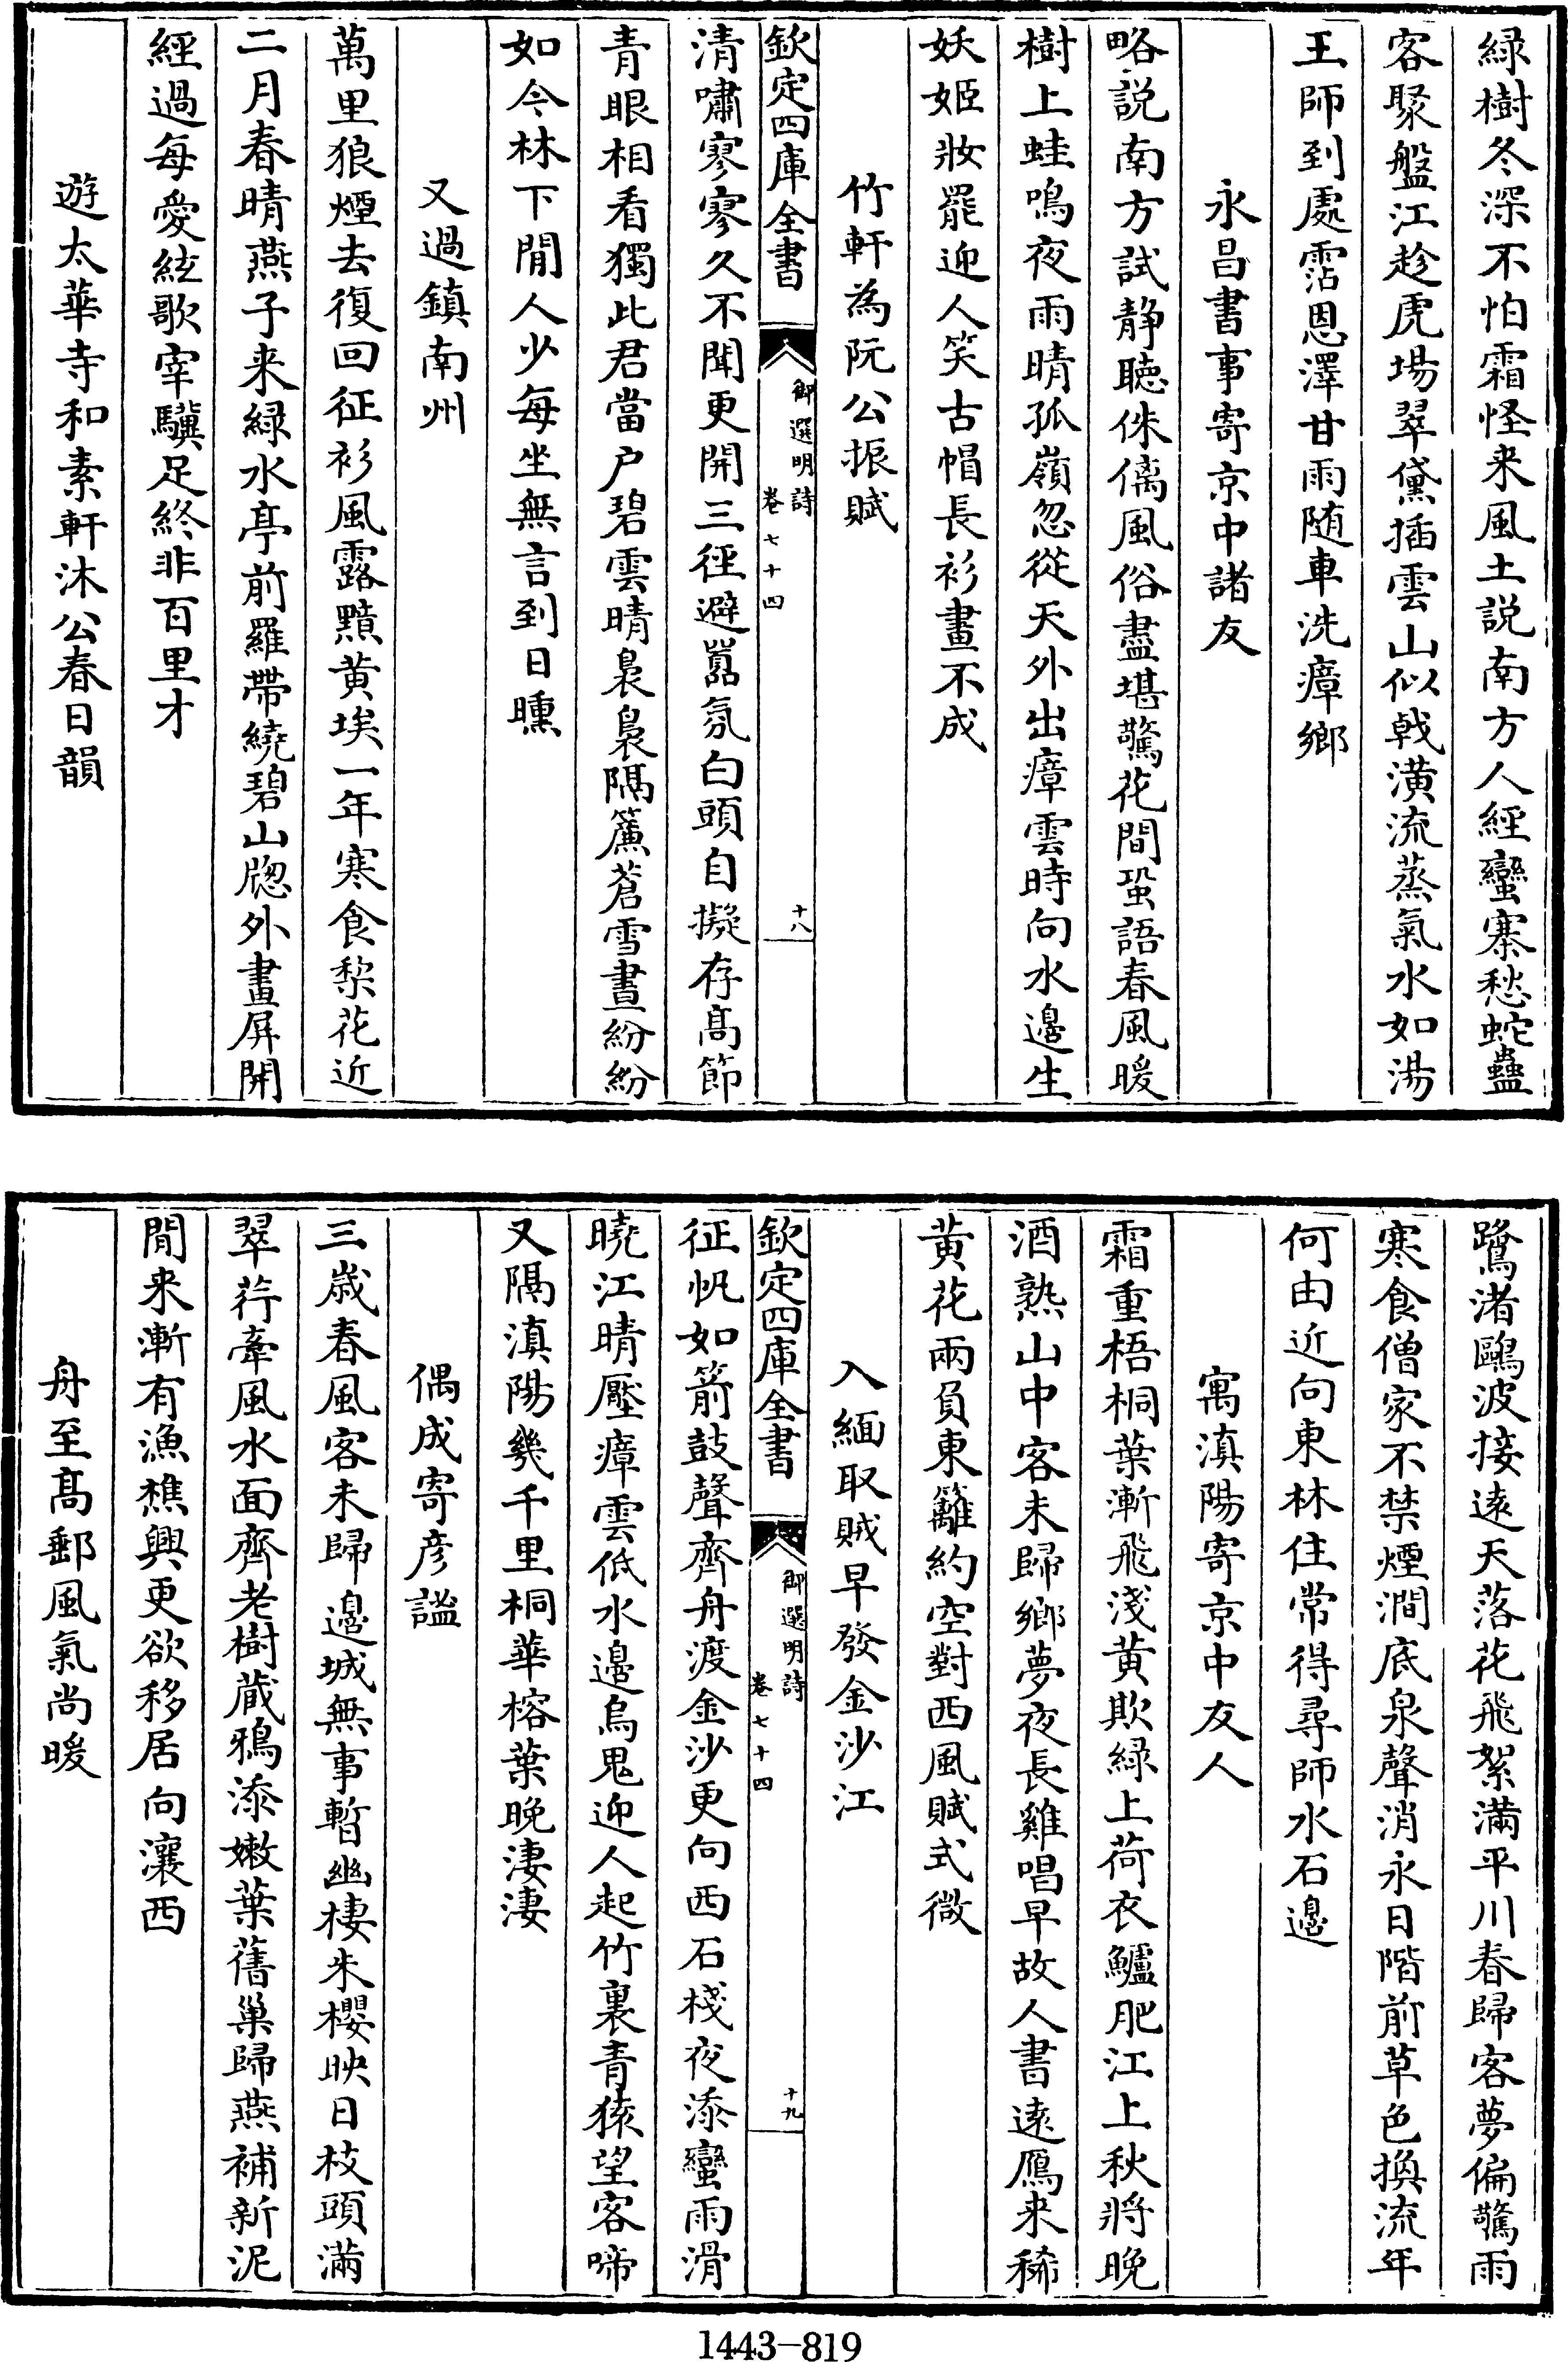 緑樹冬深不怕霜怪来風土説南方人經蠻寨愁蛇蠱
客聚盤江趁虎場翠黛插雲山似㦸潢流蒸氣水如湯
王師到處霑恩澤甘雨随車洗瘴鄉
永昌書事寄京中諸友
略説南方試静聴侏㒧風俗盡堪驚花間蛩語春風暖
樹上蛙鳴夜雨晴孤嶺忽從天外出瘴雲時向水邉生
妖姬妝罷迎人笑古帽長衫畫不成
竹軒為阮公振賦
欽定四庫全書
御選明詩
卷七十四
十八
清嘯寥寥久不聞更開三徑避囂氛白頭自擬存髙節
青眼相看獨此君當户碧雲晴裊裊隔簾蒼雪晝紛紛
如今林下閒人少每坐無言到日曛
又過鎮南州
萬里狼煙去復回征衫風露黦黄埃一年寒食棃花近
二月春晴燕子来緑水亭前羅帶繞碧山牎外畫屏開
經過每愛絃歌宰驥足終非百里才
遊太華寺和素軒沐公春日韻
鷺渚鷗波接逺天落花飛絮滿平川春歸客夢偏驚雨
寒食僧家不禁煙澗底泉聲消永日階前草色換流年
何由近向東林住常得尋師水石邉
寓滇陽寄京中友人
霜重梧桐葉漸飛淺黄欺緑上荷衣鱸肥江上秋將晚
酒熟山中客未歸鄉夢夜長雞唱早故人書逺鴈来稀
黄花兩負東籬約空對西風賦式微
入緬取賊早發金沙江
欽定四庫全書
御選明詩
卷七十四
十九
征帆如箭鼓聲齊舟渡金沙更向西石棧夜添蠻雨滑
曉江晴壓瘴雲低水邉烏鬼迎人起竹裏青猿望客啼
又隔滇陽幾千里桐華榕葉晚淒淒
偶成寄彦謐
三歳春風客未歸邉城無事暫幽棲朱櫻映日枝頭滿
翠荇牽風水面齊老樹蔵鴉添嫩葉舊巢歸燕補新泥
閒来漸有漁樵興更欲移居向瀼西
舟至髙郵風氣尚暖
1443-819